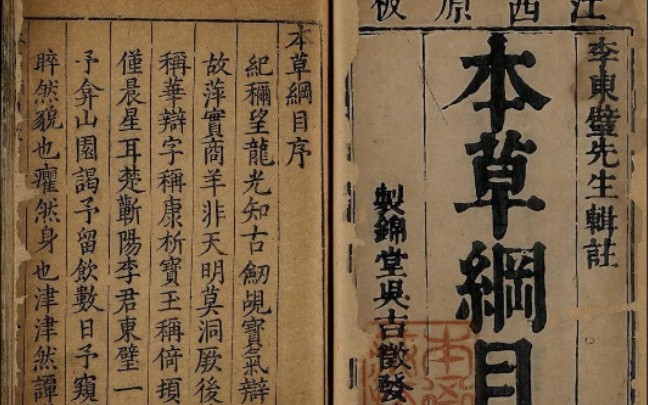 江西原板
李東璧先生輯註
本草綱目
製錦堂吳古徵發
本草綱目序
紀穪望龍光知古劒覘寶氣辯
故萍實商羊非天明莫洞厥後
稱華辯字稱康析寶王稱倚頓
僅晨星耳楚蘄陽李君東璧一
予弇山園謁予留飲數日予窺
睟然貌也癯然身也津津然譚